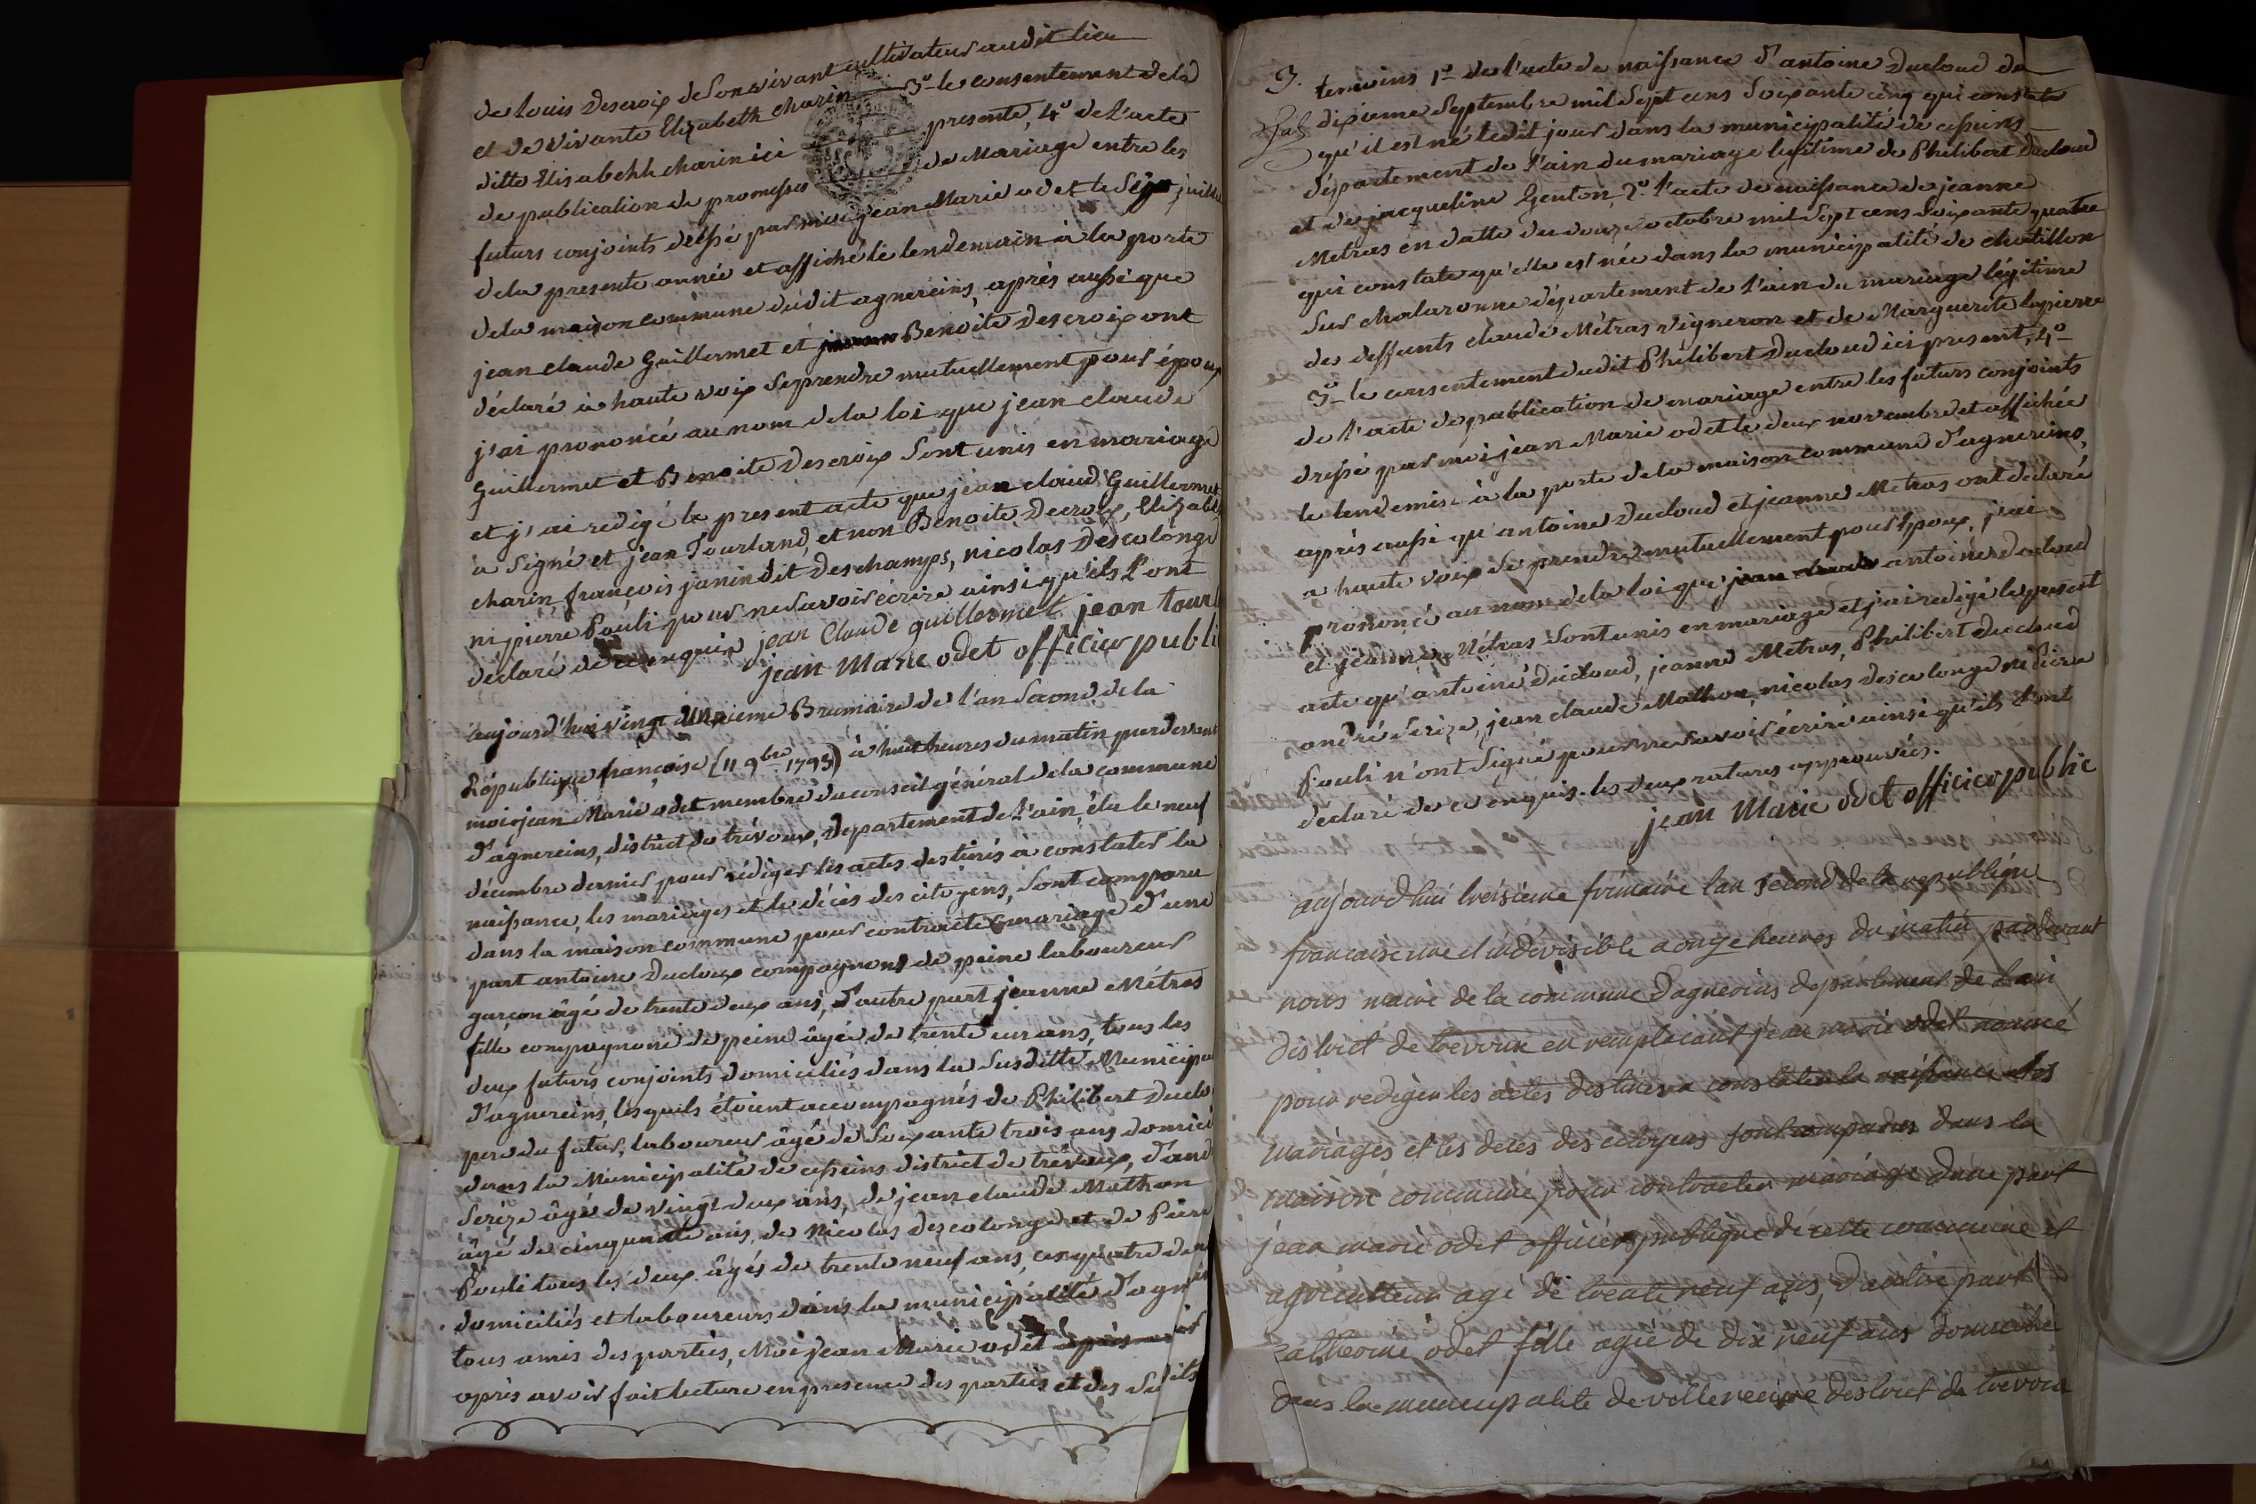 de Louis Descroix de Son vivant cultivateur audit lieu
et de vivante Elizabeth charin 3º le consentement dela
ditte Elisabehh charin ici presente, 4º de l'acte
de publication de promesse de Mariage entre les
futurs conjoints dressé par moi jean Marie odet le Sept juillet
dela presente année et affiché le lendemain à la porte
dela maison commune dudit agnereins, après aussi que
jean claude Guillermet et Benoite Descroix ont
déclaré à haute voix Se prendre mutuellement pour époux
j'ai prononcé au nom dela loi que jean claude
Guillermet et Benoite Descroix Sont unis en mariage
et j'ai redigé le present acte que jean claud Guillermet
à Signé et jean Tourland, et non Benoite Decroix, Elizabeth
charin, françois janin dit Deschamps, nicolas Descolonge
ni pierre Pouli pour ne Savoir écrire ainsi qu'ils l'ont
déclaré de ce enquis jean Claude guillermet jean tour
jean Marie odet officier public
aujourd'hui vingt unieme Brumaire de l'an Second de la
République françoise (11 9bre 1793) à huit heures du matin par devant
moi jean Marie odet membre du conseil général dela commune
d'agnereins, district de trévoux, département de l'ain, élu le neuf
décembre dernier pour rédiger les actes destinés à constater la
naissance, les mariages et le décès des citoyens, Sont comparu
dans la maison commune pour contracter mariage d'une
part antoine Ducloux compagnons de peine laboureur
garçon âgé de trente deux ans, d'autre part jeanne Métras
fille compagnone de peine âgée de trente un ans, tous les
deux futurs conjoints domiciliés dans la Susditte Municipa
d'agnereins, lesquels étoient accompagnés de Philibert Duclo
pere du futur, laboureur âgé de Soixante trois ans domici
dans la Municipalité de cesseins district de trevoux, d'and
Serize âgé de vingt deux ans, de jean claude Mathon
âgé de cinquante ans, de Nicolas descolonge et de Pierre
Pouli tous les deux âgés de trente neuf ans, ces quatre dern
domiciliés et laboureurs dans la municipalité d'agn
tous amis des parties, Moi jean Marie odet
après avoir fait lecture en presence des parties et des Sudits
3. temoins 1º de l'acte de naissance d'antoine Ducloud du
dixieme Septembre mil Sept cens Soixante cinq qui constate
qu'il est né ledit jour dans la municipalité de cesseins
département de l'ain du mariage legitime de Philibert Ducloud
et de jacqueline Genton, 2º l'acte de naissance de jeanne
Metras en datte du douze octobre mil Sept cens Soixante quatre
qui constate qu'elle est née dans la municipalité de chatillon
Sur chalaronne département de l'ain du mariage légitime
des deffunts claude Métras vigneron et de Marguerite lapierre
3º le consentement dudit Philibert Ducloud ici present, 4º
de l'acte de publication de mariage entre les futurs conjoints
dressé par moi jean Marie odet le deux novembre et affichée
le lendemin à la porte de la maison commune d'agnereins,
après aussi qu'antoine Ducloud et jeanne Metras ont declaré
a haute voix Se prendre mutuellement pour Epoux, j'ai
prononcé au nom dela loi que jean claude antoine Ducloud
et jeanne Métras Sont unis en mariage et j'ai redigé le present
acte qu'antoine Ducloud, jeanne Metras, Philibert Ducloud
andré Serize, jean claude Mathon, nicolas descolonge ni Piere
Pouli n'ont Signé pour ne Savoir écrire ainsi qu'ils l'ont
declaré de ce enquis. les deux ratures approuvées.
jean Marie odet officier public
aujourdhui treisieme frimaire lan second de la republique
francaise une et indevisible a onze heures du matin pardevant
nous maire de la commune dagnereins departement de lain
district de trevoux en remplacant jean marie odet nommé
pour rediger les actes destines a constater la naissance les
mariages et les deces des citoyens sont comparus dans la
maison commune pour contracter mariage dune part
jean marie odet officier publique de cette commune et
agriculteur agé de trente neuf ans, dautre part
catherine odet fille agée de dix neuf ans domicilie
dans la municipalité de villeneuve district de trevoux